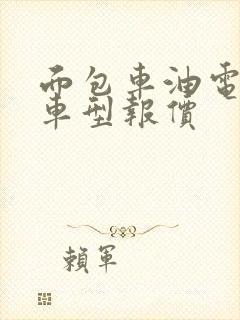 而包車油電
車型報價
賴軍